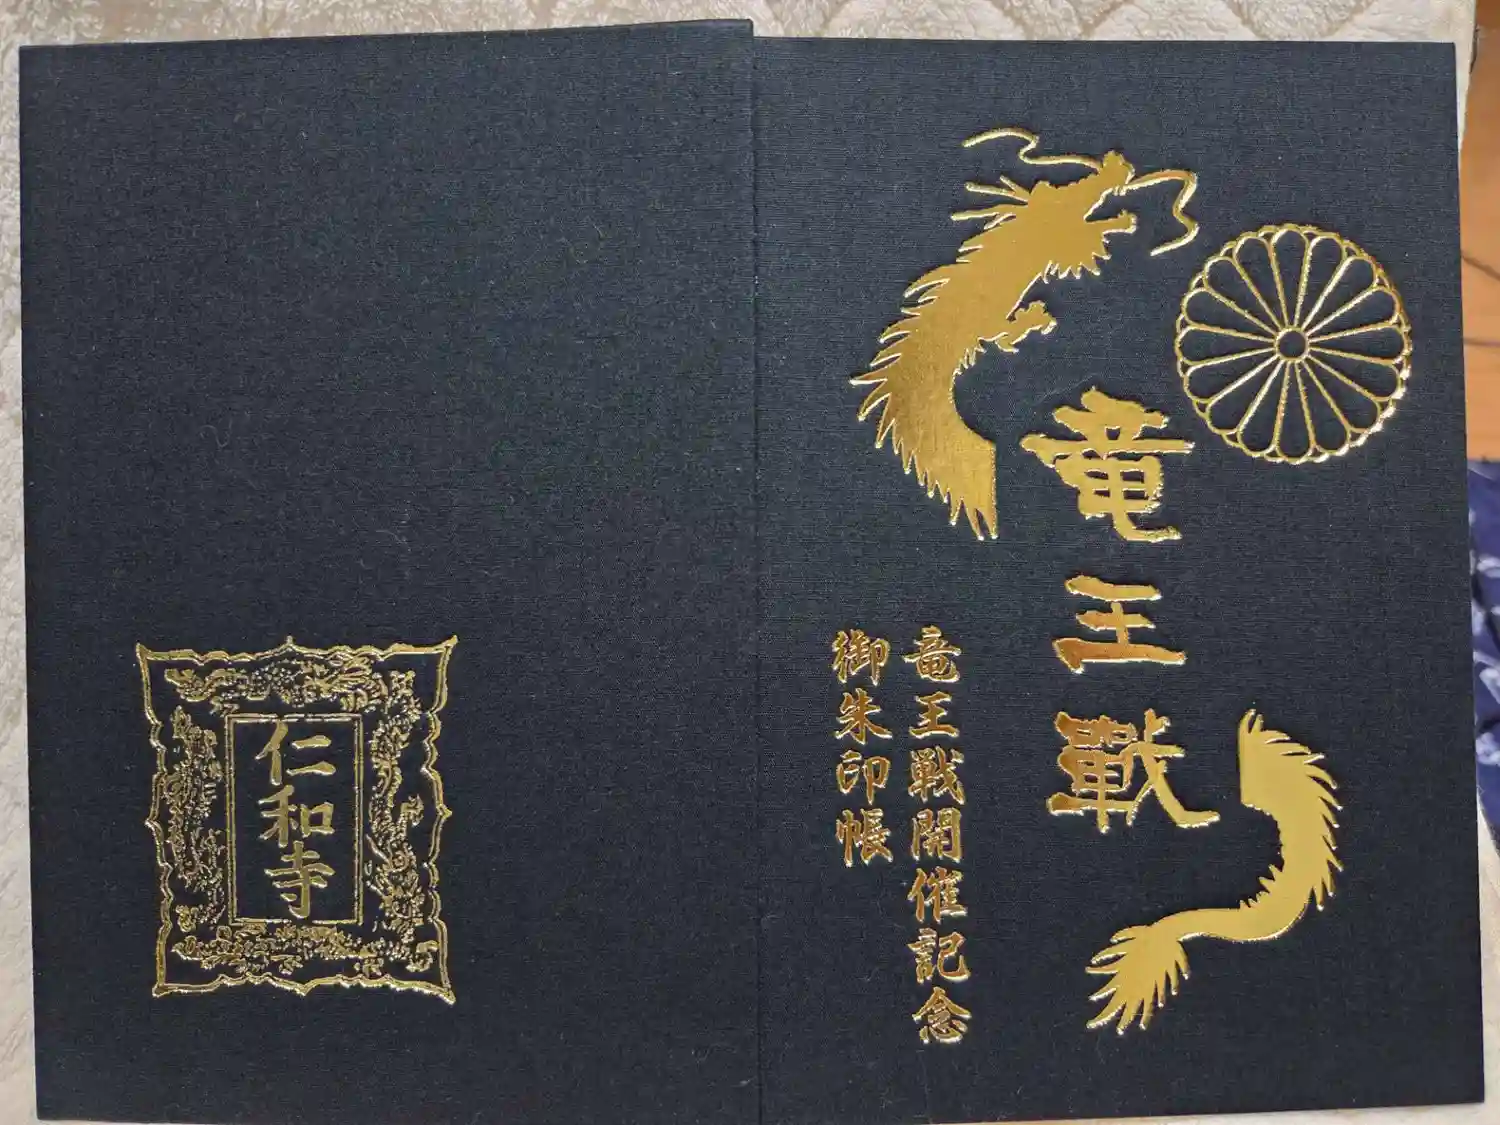 竜王戰
竜王戦開催記念
御朱印帳
仁和寺